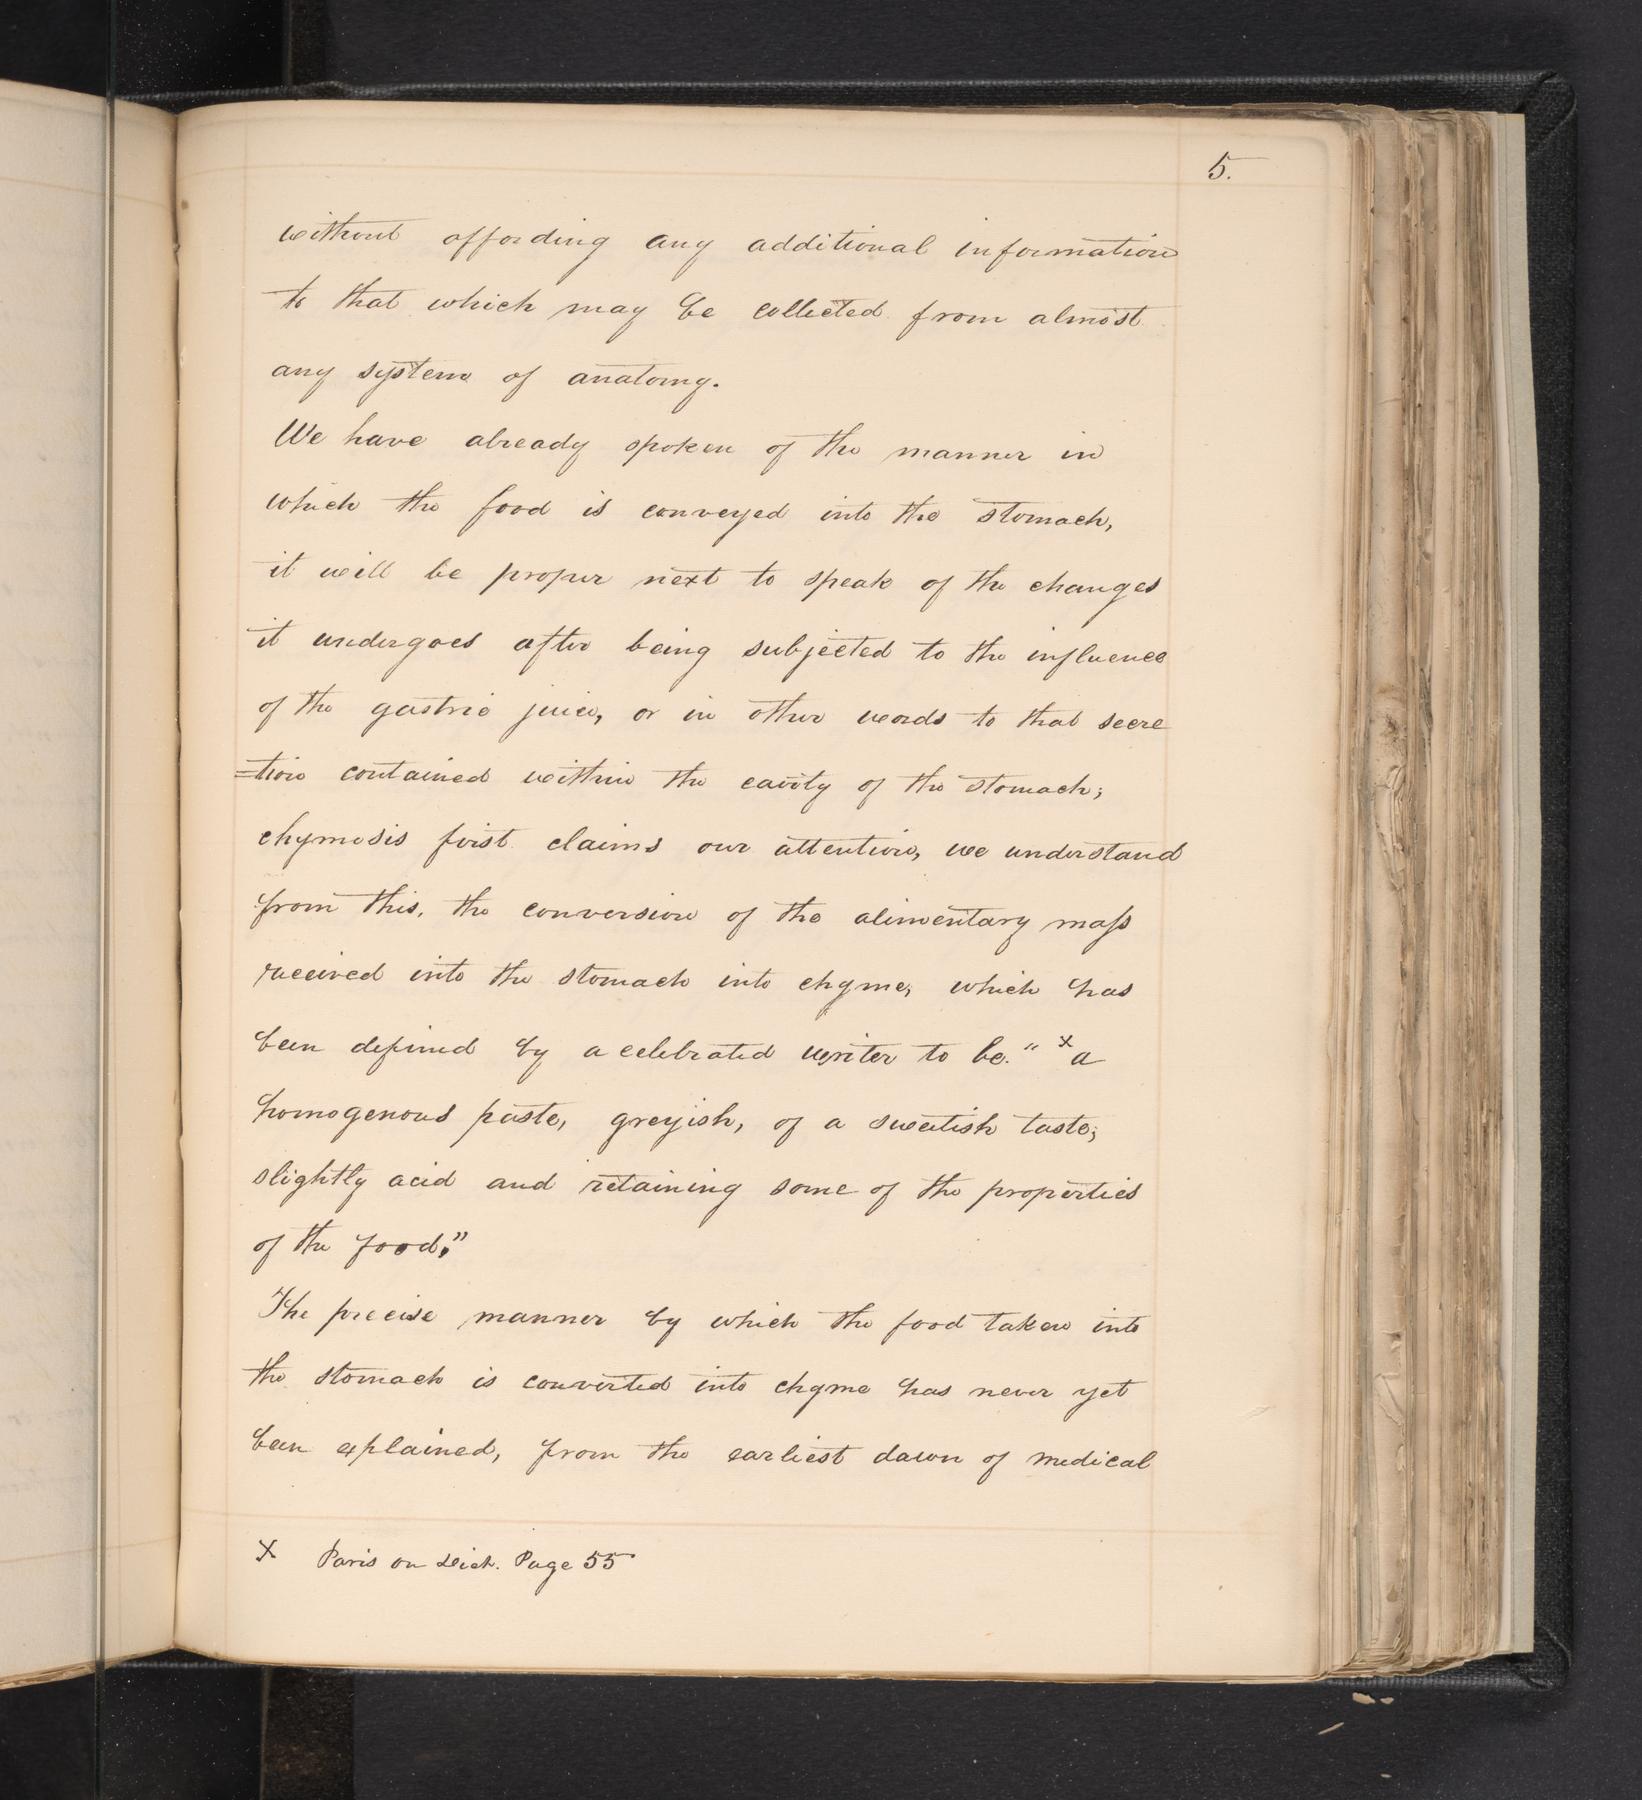 5.
without affording any additional information
to that which may be collected from almost
any system of anatomy.
We have already spoken of the manner in
which the food is conveyed into the stomach,
it will be proper next to speak of the changes
it undergoes after being subjected to the influence
of the gastric juice, or in other words to that secre
=tion contained within the cavity of the stomach;
chymosis first claims our attention, we understand
from this, the conversion of the alimentary mass
received into the stomach into chyme, which has
been defined by a celebrated writer to be. " x a
homogenous paste, greyish, of a sweetish taste;
slightly acid and retaining some of the properties
of the food,"
The precise manner by which the food taken into
the stomach is converted into chyme has never yet
been explained, from the earliest dawn of medical
x Paris on Diet. Page 55